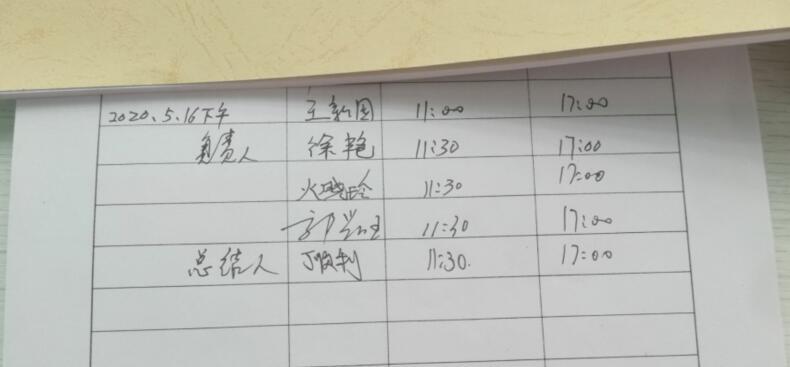 2020.5.16下午 王新国 11:00 17:00
负责人 徐艳 11:30 17:00
火晓玲 11:30 17:00
郭 11:30 17:00
总结人 丁顺利 11:30. 17:00